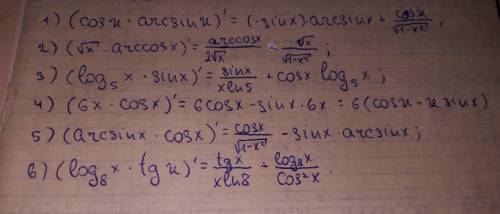 1) (cosx · arcsinx)' = (-sinx)·arcsinx + cosx/√(1-x²) ;
2) (√x · arccosx)' = arccosx/2√x - √x/√(1-x²) ;
3) (log₅x · sinx)' = sinx/xln5 + cosx log₅x ;
4) (6x · cosx)' = 6cosx - sinx · 6x = 6(cosx - x sinx)
5) (arcsinx · cosx)' = cosx/√(1-x²) - sinx · arcsinx ;
6) (log₈x · tgx)' = tgx/xln8 + log₈x/cos²x .